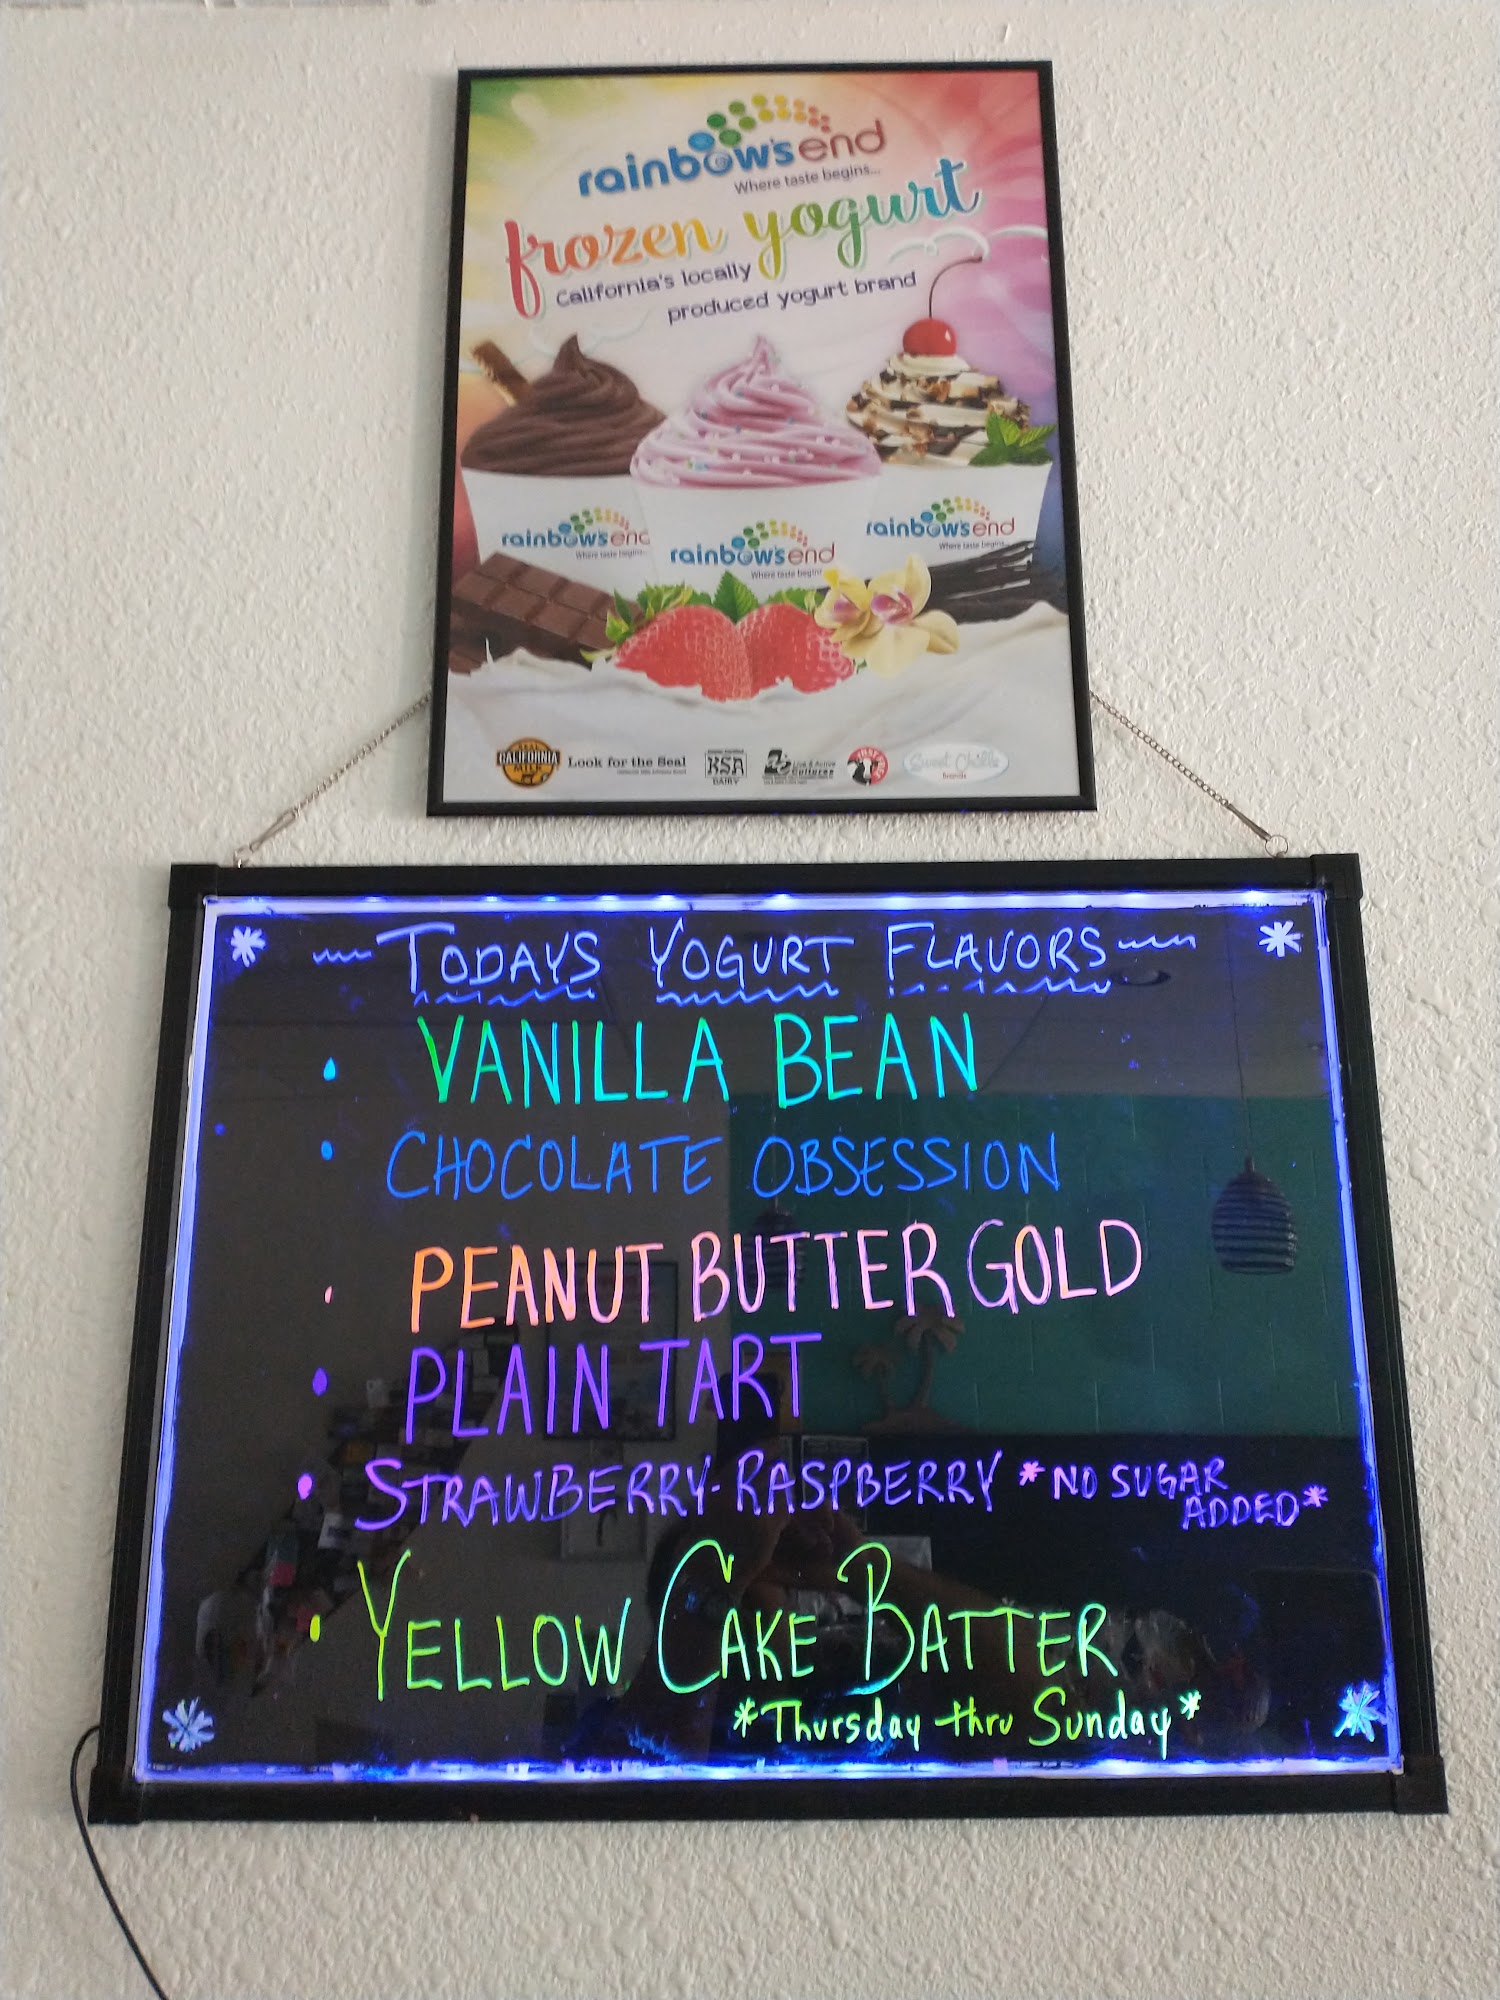 rainbow's end
Where taste begins...
frozen yogurt
California's locally
produced yogurt brand
rainbow's end
Where taste begins...
rainbow's end
Where taste begins
rainbow's end
Where taste begins...
REAL
CALIFORNIA
MILK
Look for the Seal
KSA
DAIRY
Live & Active
Cultures
rBST FREE
Sweet Chills
Brands
TODAYS YOGURT FLAVORS
• VANILLA BEAN
• CHOCOLATE OBSESSION
• PEANUT BUTTER GOLD
• PLAIN TART
• STRAWBERRY-RASPBERRY *NO SUGAR
ADDED*
• YELLOW CAKE BATTER
*Thursday thru Sunday*